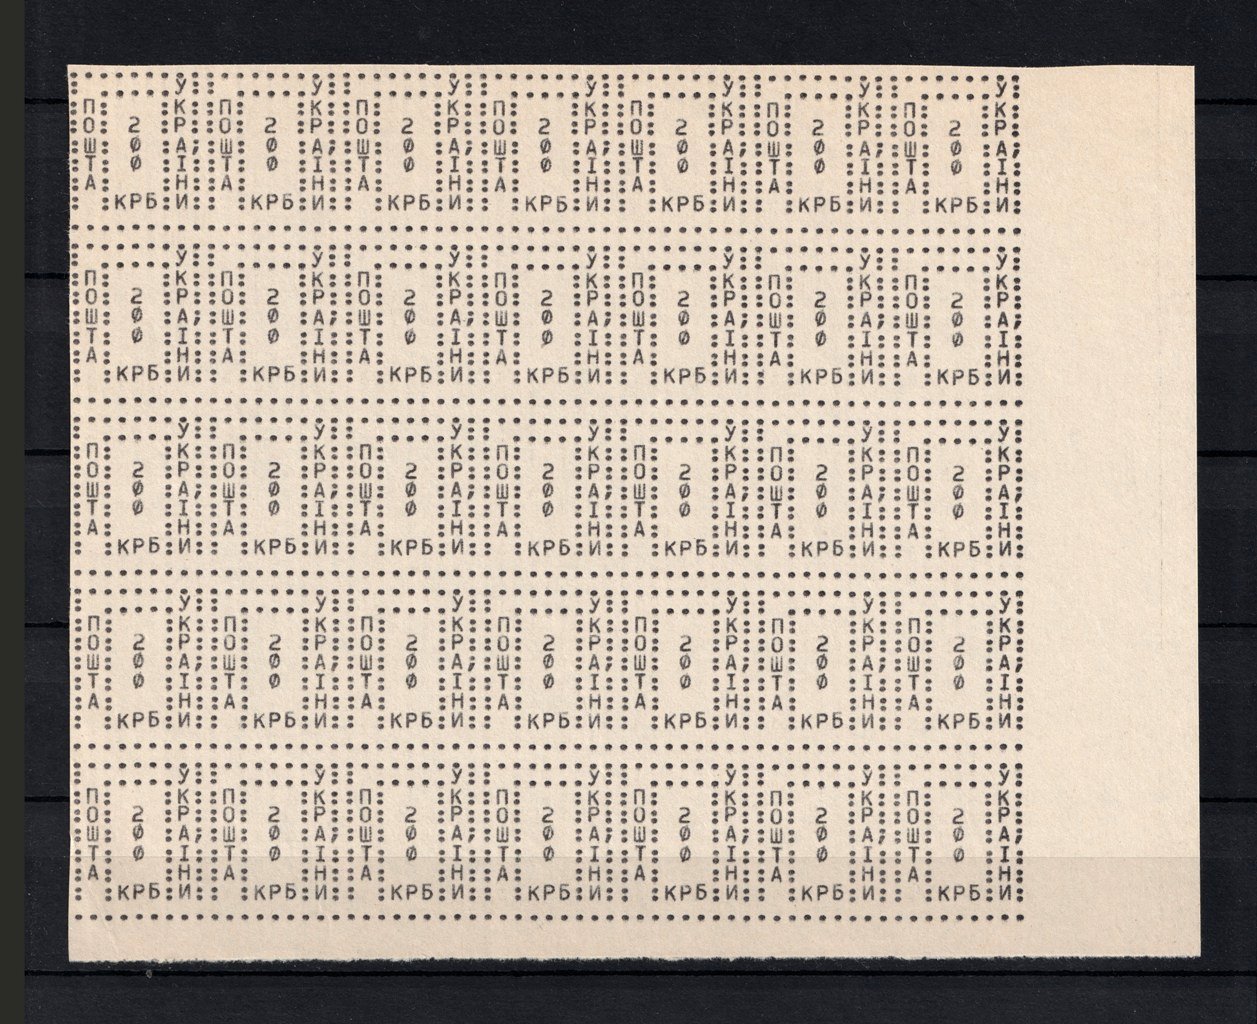 ПОШТА 200 КРБ УКРАЇНИ ПОШТА 200 КРБ УКРАЇНИ ПОШТА 200 КРБ УКРАЇНИ ПОШТА 200 КРБ УКРАЇНИ ПОШТА 200 КРБ УКРАЇНИ ПОШТА 200 КРБ УКРАЇНИ ПОШТА 200 КРБ УКРАЇНИ
ПОШТА 200 КРБ УКРАЇНИ ПОШТА 200 КРБ УКРАЇНИ ПОШТА 200 КРБ УКРАЇНИ ПОШТА 200 КРБ УКРАЇНИ ПОШТА 200 КРБ УКРАЇНИ ПОШТА 200 КРБ УКРАЇНИ ПОШТА 200 КРБ УКРАЇНИ
ПОШТА 200 КРБ УКРАЇНИ ПОШТА 200 КРБ УКРАЇНИ ПОШТА 200 КРБ УКРАЇНИ ПОШТА 200 КРБ УКРАЇНИ ПОШТА 200 КРБ УКРАЇНИ ПОШТА 200 КРБ УКРАЇНИ ПОШТА 200 КРБ УКРАЇНИ
ПОШТА 200 КРБ УКРАЇНИ ПОШТА 200 КРБ УКРАЇНИ ПОШТА 200 КРБ УКРАЇНИ ПОШТА 200 КРБ УКРАЇНИ ПОШТА 200 КРБ УКРАЇНИ ПОШТА 200 КРБ УКРАЇНИ ПОШТА 200 КРБ УКРАЇНИ
ПОШТА 200 КРБ УКРАЇНИ ПОШТА 200 КРБ УКРАЇНИ ПОШТА 200 КРБ УКРАЇНИ ПОШТА 200 КРБ УКРАЇНИ ПОШТА 200 КРБ УКРАЇНИ ПОШТА 200 КРБ УКРАЇНИ ПОШТА 200 КРБ УКРАЇНИ